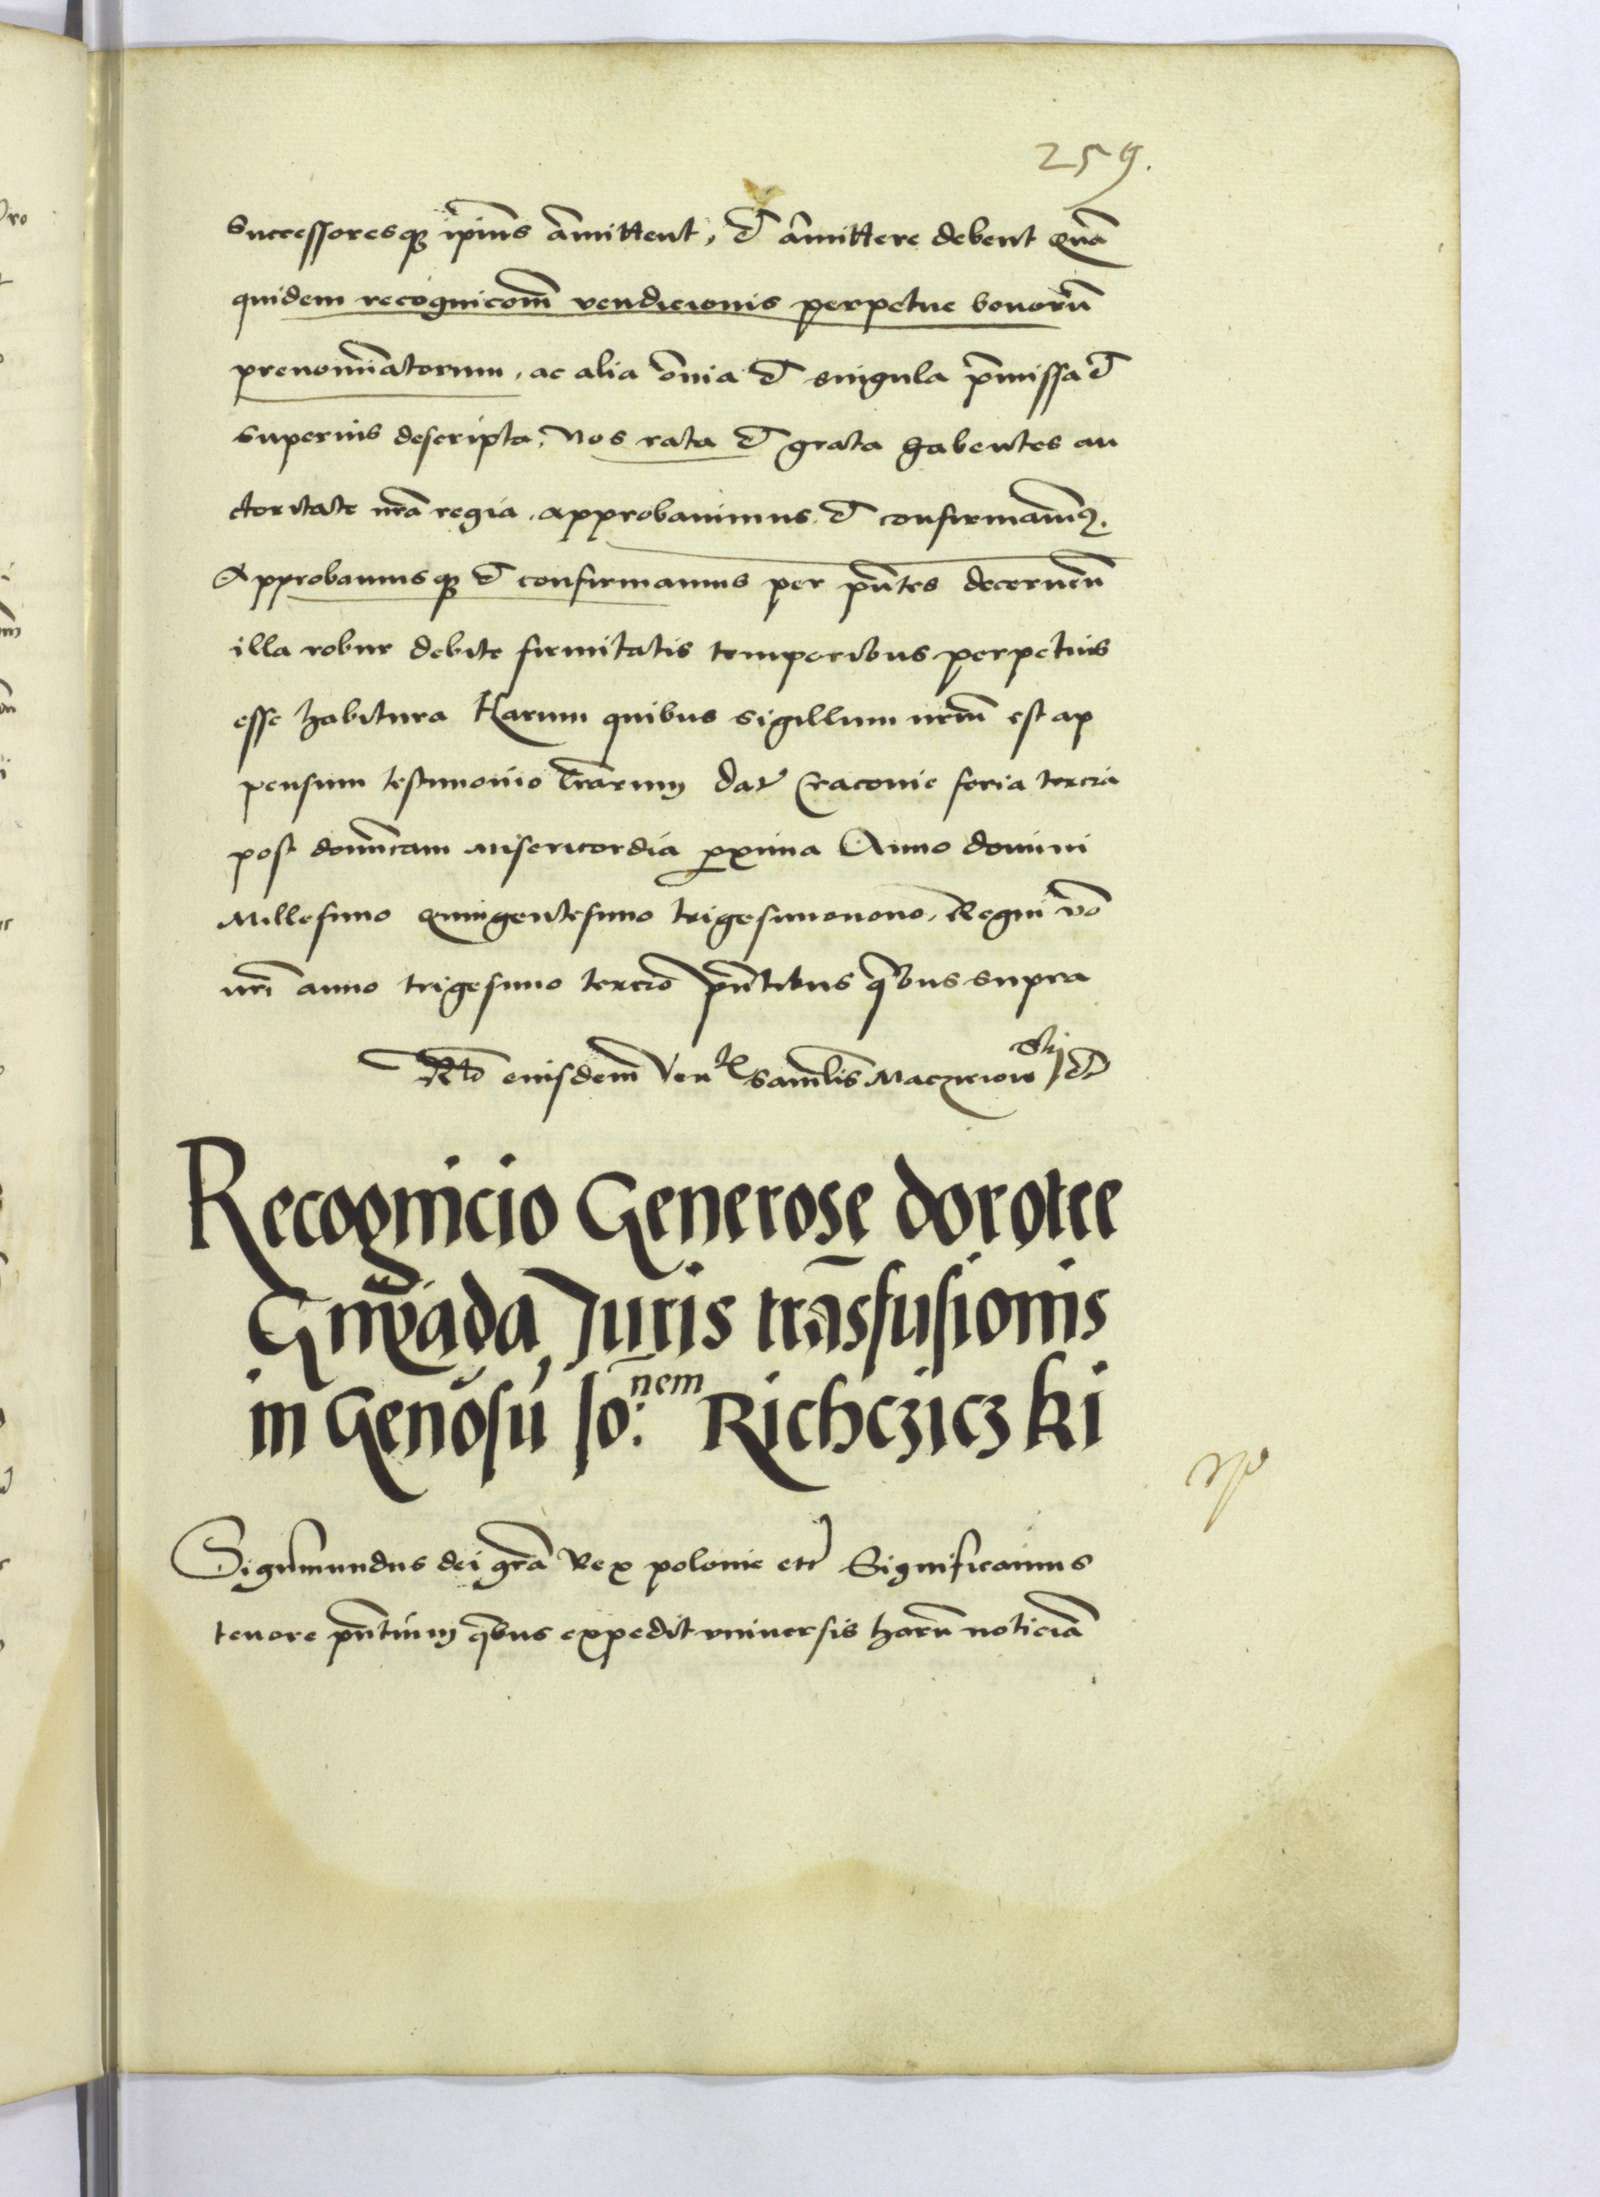 259.
Successoresq3 ip̄ius āmittent, et āmittere debent Quā
quidem recognicōem vendicionis perpetue bonorū
prenomīatorum, ac alia ōnia et singula p̄missa et
superius descripta, Nos rata et grata habentes au
ctoritate nr̄a regia approbavimus et confirmavimꝰ.
Approbamusq3 et confirmamus per pn̄tes decernen̄
illa robur debite firmitatis temporibus perpetuis
esse habitura Harum quibus sigillum nrm̄ est ap
pensum testimonio lr̄arum Dat Cracovie feria tercia
post domīcam Misericordia ꝓxima Anno domini
Millesimo Quingentesimo trigesimonono, Regni vō
nr̄i anno trigesimo tercio pn̄tibus qͥbus supra
Rtō eiusdem Ven Samlis Maczieiowski etc
Recognicio Generose dorotee
Juris trāsfusionis
in Genōsū Io:nem Richcziczki
Sigismundus dei grā Rex polonie etc Significamus
tenore pn̄tium qͥbus expedit universis harū noticiā